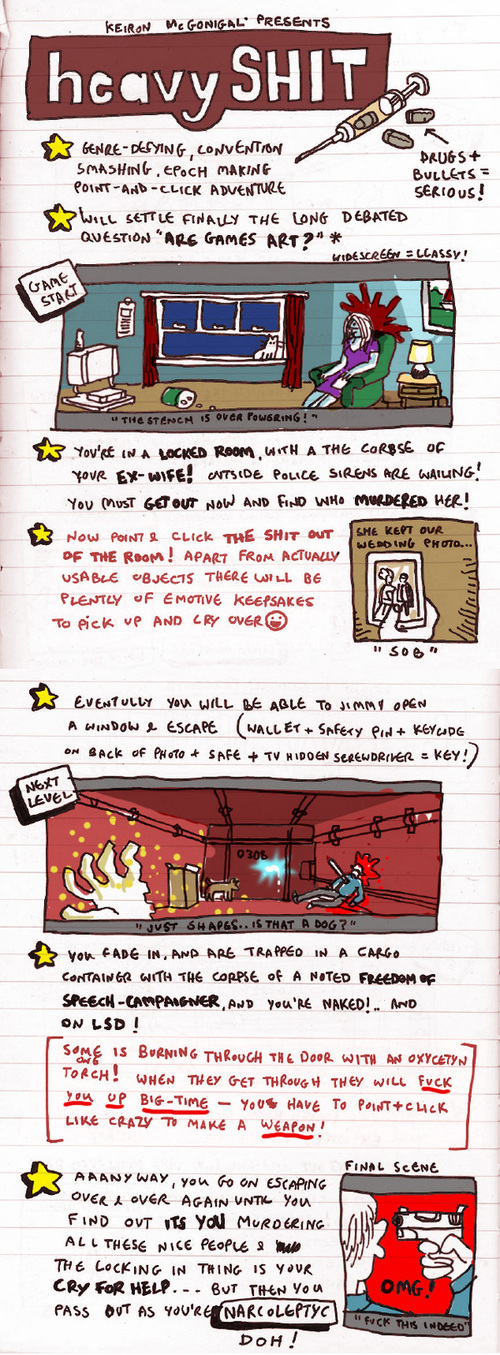 KEIRON McGONIGAL PRESENTS
heavy SHIT
GENRE-DEFYING, CONVENTION
SMASHING, EPOCH MAKING
POINT-AND-CLICK ADVENTURE
DRUGS +
BULLETS =
SERIOUS!
WILL SETTLE FINALLY THE LONG DEBATED
QUESTION "ARE GAMES ART?" *
WIDESCREEN = CLASSY!
GAME
START
"THE STENCH IS OVER POWERING!"
YOU'RE IN A LOCKED ROOM, WITH A THE CORPSE OF
YOUR EX-WIFE! OUTSIDE POLICE SIRENS ARE WAILING!
YOU MUST GET OUT NOW AND FIND WHO MURDERED HER!
NOW POINT & CLICK THE SHIT OUT
OF THE ROOM! APART FROM ACTUALLY
USABLE OBJECTS THERE WILL BE
PLENTLY OF EMOTIVE KEEPSAKES
TO PICK UP AND CRY OVER
SHE KEPT OUR
WEDDING PHOTO...
"SOB"
EVENTULLY YOU WILL BE ABLE TO JIMMY OPEN
A WINDOW & ESCAPE (WALLET + SAFETY PIN + KEYCODE
ON BACK OF PHOTO + SAFE + TV HIDDEN SCREWDRIVER = KEY!)
NEXT
LEVEL
0306
"JUST SHAPES.. IS THAT A DOG?"
YOU FADE IN, AND ARE TRAPPED IN A CARGO
CONTAINER WITH THE CORPSE OF A NOTED FREEDOM OF
SPEECH-CAMPAIGNER, AND YOU'RE NAKED!.. AND
ON LSD!
SOME ONE IS BURNING THROUGH THE DOOR WITH AN OXYCETYN
TORCH! WHEN THEY GET THROUGH THEY WILL FUCK
YOU UP BIG-TIME — YOU'S HAVE TO POINT+CLICK
LIKE CRAZY TO MAKE A WEAPON!
AAANYWAY, YOU GO ON ESCAPING
OVER & OVER AGAIN UNTIL YOU
FIND OUT ITS YOU MURDERING
ALL THESE NICE PEOPLE &
THE LOCKING IN THING IS YOUR
CRY FOR HELP... BUT THEN YOU
PASS OUT AS YOU'RE NARCOLEPTYC
DOH!
FINAL SCENE
OMG!
"FUCK THIS INDEED"